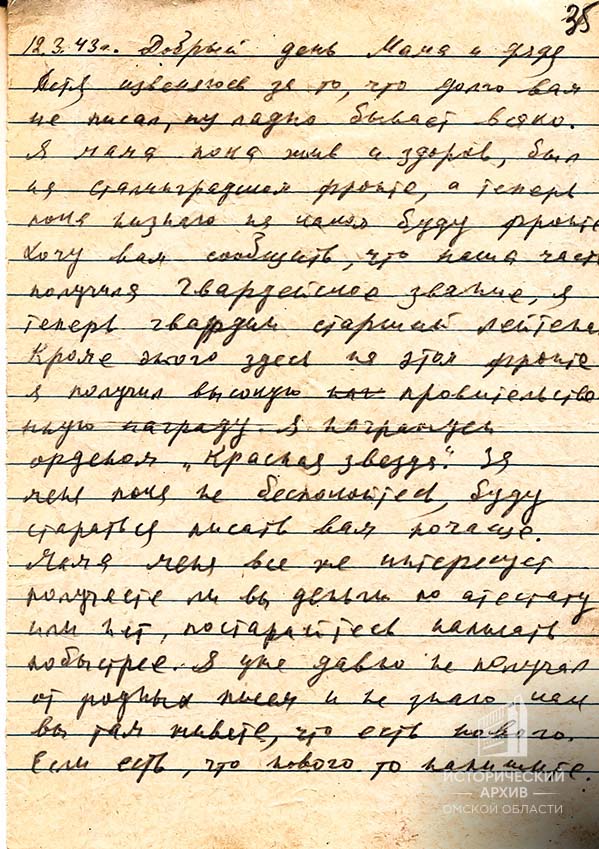 35
12.3.43г. Добрый день Мама и дядя
Петя извеняюсь за то, что долго вам
не писал, ну ладно бывает всяко.
Я мама пока жив и здоров, был
на сталинградском фронте, а теперь
пока низнаю на каком буду фронте
Хочу вам сообщить, что наша часть
получила Гвардейское звание, я
теперь гвардии старший лейтена
Кроме этого здесь на этом фронте
я получил высокую наг провительстве
нную награду. Я награжден
орденом „Красная звезда". За
меня пока не беспокойтесь, буду
стараться писать вам почаще.
Мама меня все же интересует
получаете ли вы деньги по атестату
или нет, постарайтесь написать
побыстрее. Я уже давно не получал
от родных писем и не знаю как
вы там живете, что есть нового.
Если есть, что нового то напишите.
ИСТОРИЧЕСКИЙ
АРХИВ
ОМСКОЙ ОБЛАСТИ